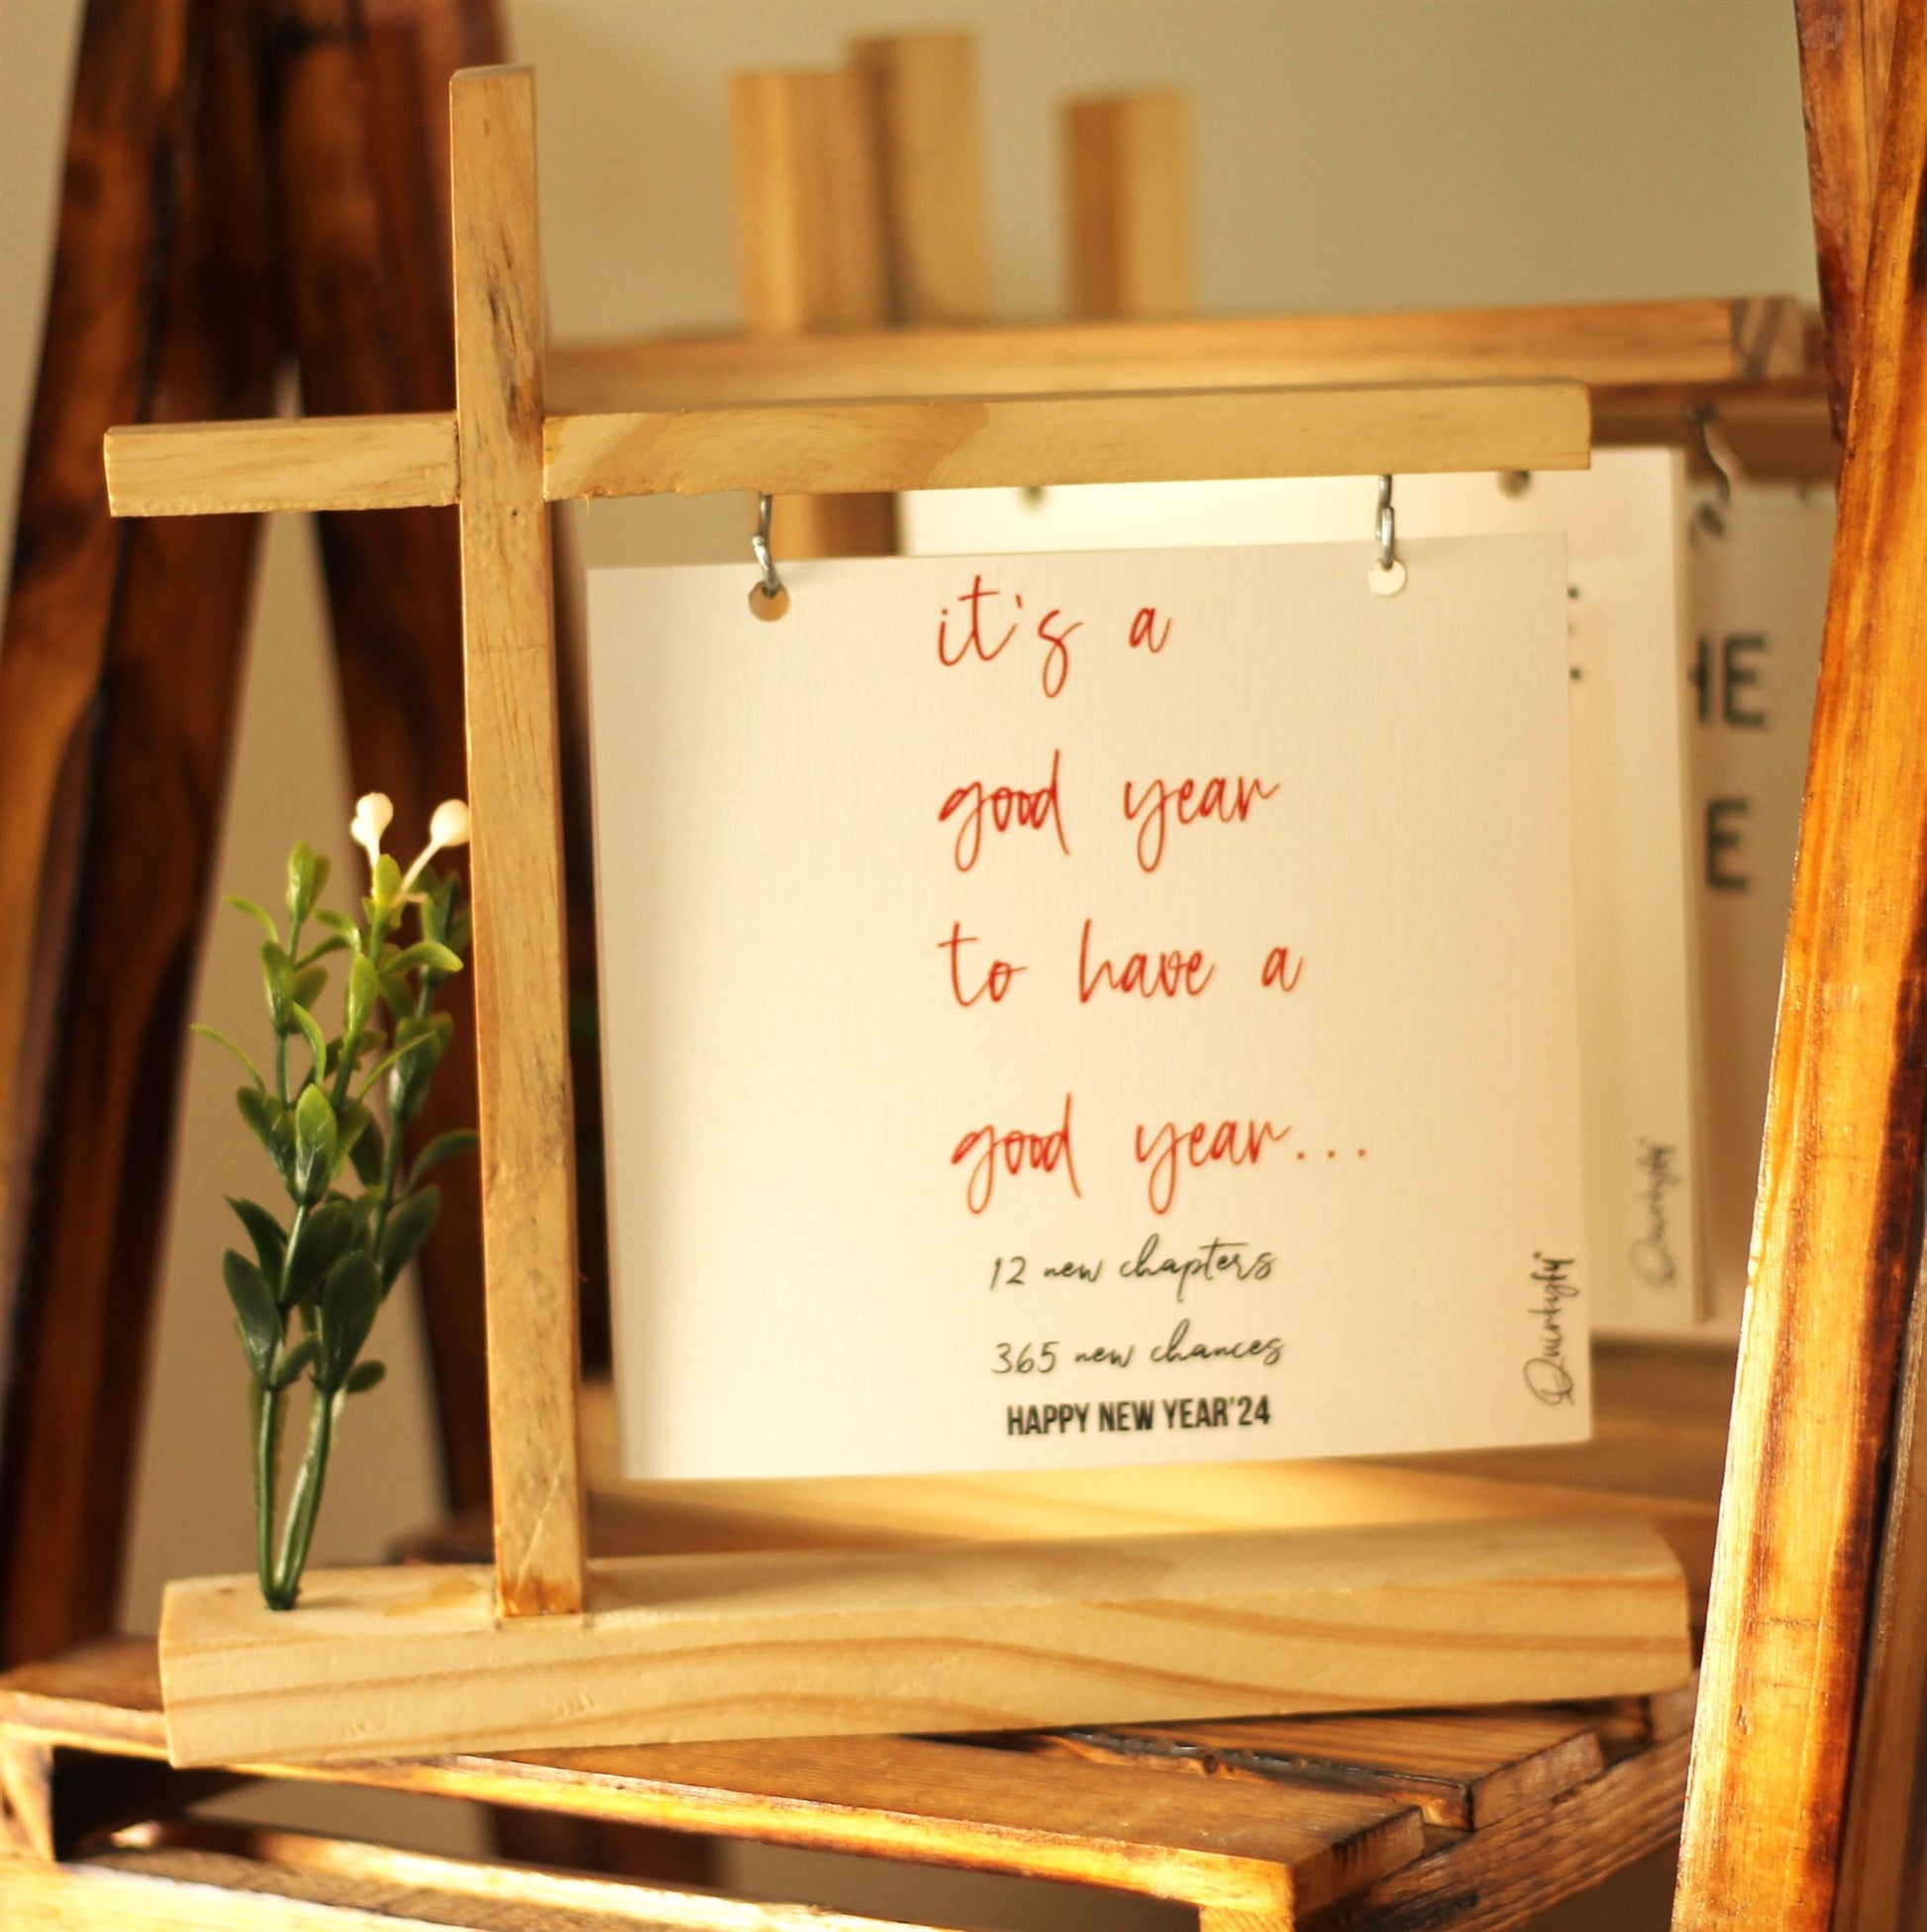 it's a
good year
to have a
good year...
12 new chapters
365 new chances
HAPPY NEW YEAR'24
Quirkyfy
HE
E